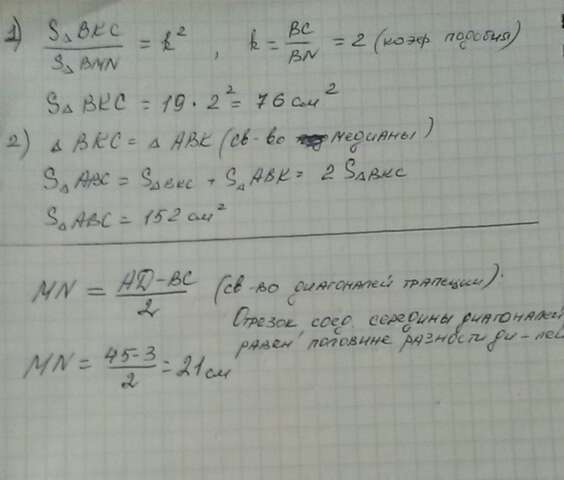 1) S△BKC / S△BMN = k², k = BC/BN = 2 (коэф подобия)
S△BKC = 19 · 2² = 76 см²
2) △ BKC = △ ABK (св-во медианы)
S△ABC = S△BKC + S△ABK = 2 S△BKC
S△ABC = 152 см²
MN = AD-BC / 2 (св-во диагоналей трапеции).
Отрезок соед. середины диагоналей
равен половине разности ди-лей
MN = 45-3 / 2 = 21 см